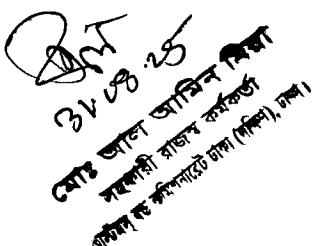 ৩১.০৩.২৫
মোঃ আল আমিন মিয়া
সহকারী রাজস্ব কর্মকর্তা
কাস্টমস্ বন্ড কমিশনারেট ঢাকা (দক্ষিণ), ঢাকা।